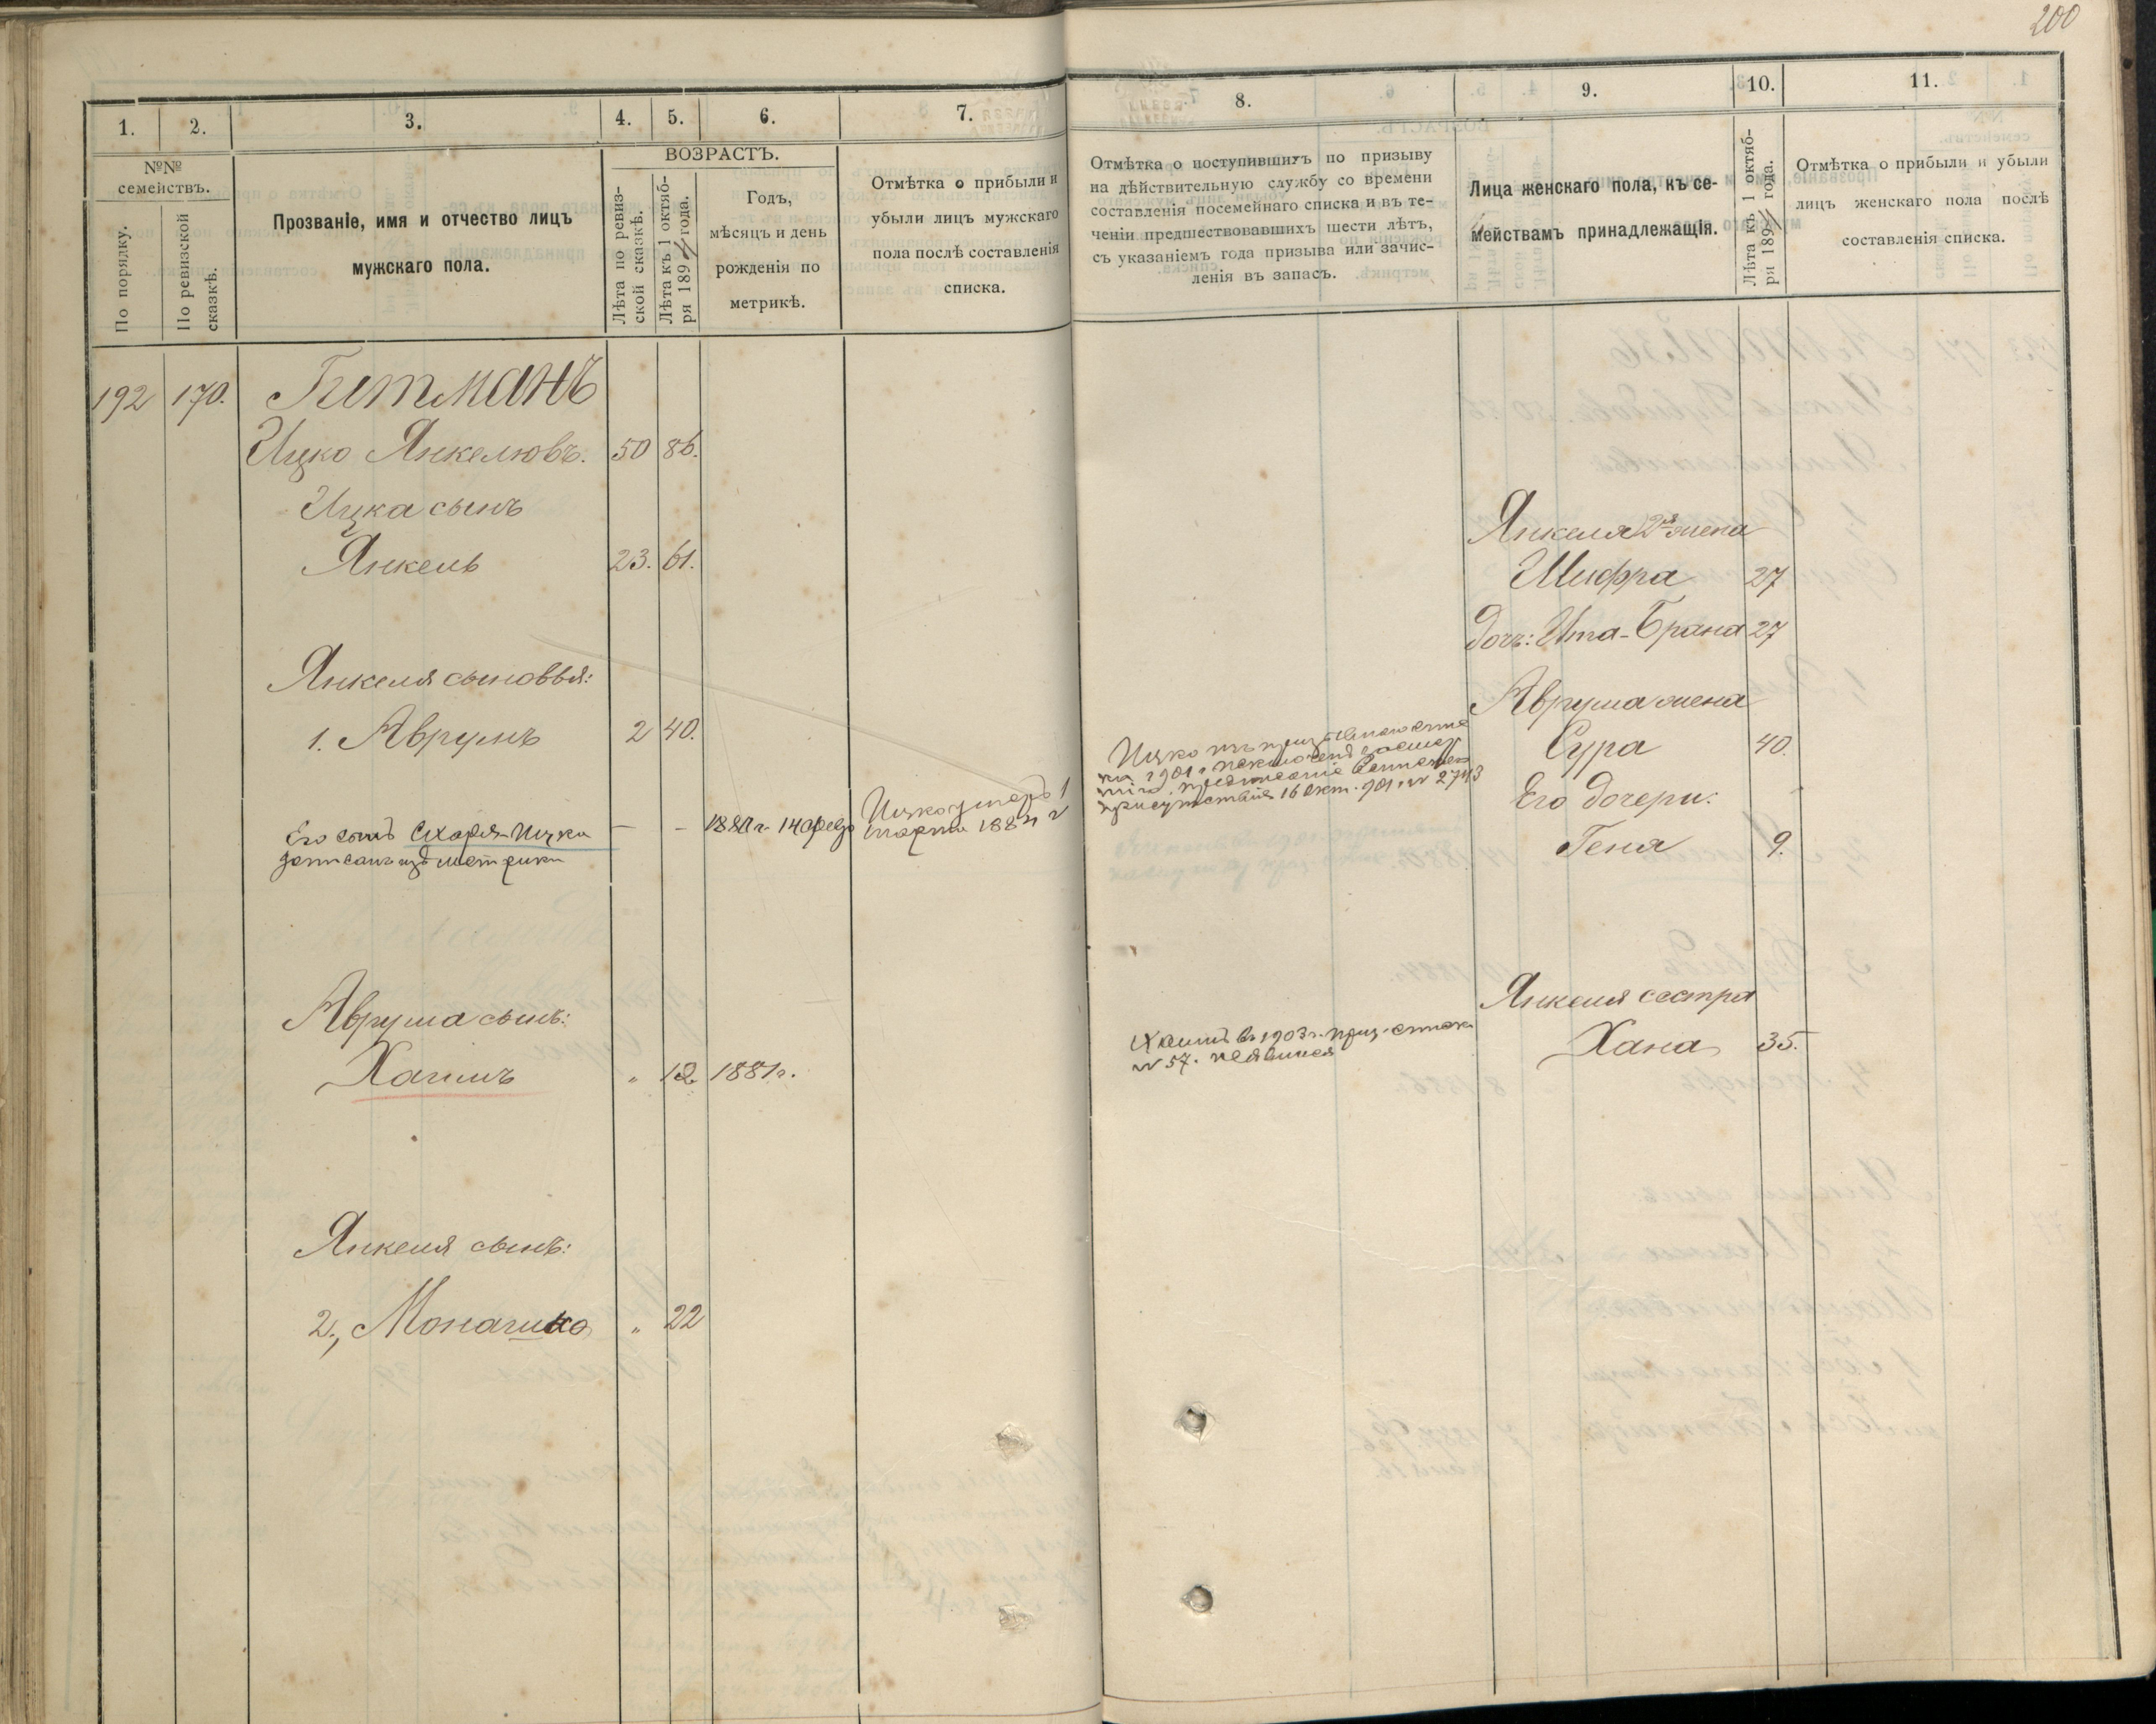 200
1.
2.
3.
4.
5.
6.
7.
8.
9.
10.
11.
№№
семействъ.
По порядку.
По ревизской
сказкѣ.
Прозваніе, имя и отчество лицъ
мужскаго пола.
ВОЗРАСТЪ.
Лѣта по ревиз-
ской сказкѣ.
Лѣта къ 1 октяб-
ря 189 года.
Годъ,
мѣсяцъ и день
рожденія по
метрикѣ.
Отмѣтка о прибыли и
убыли лицъ мужскаго
пола послѣ составленія
списка.
Отмѣтка о поступившихъ по призыву
на дѣйствительную службу со времени
составленія посемейнаго списка и въ те-
ченіи предшествовавшихъ шести лѣтъ,
съ указаніемъ года призыва или зачис-
ленія въ запасъ.
Лица женскаго пола, къ се-
мействамъ принадлежащія.
Лѣта къ 1 октяб-
ря 189 года.
Отмѣтка о прибыли и убыли
лицъ женскаго пола послѣ
составленія списка.
192 170. Гитманъ
Ицко Янкелювъ. 50 86.
Ицка сынъ
Янкель 23. 61.
Янкеля сыновья:
1. Аврумъ 2 40.
Его сынъ Сахаря-Ицко — — 1880 г. 14 Ицко умеръ 1
записанъ изъ метрики марта 1884 г
Аврума сынъ:
Хаимъ " 12 1881 г.
Янкеля сынъ:
2., " 22
Ицко изъ
на 1901 г.
присутствія 16 окт. 901 г. № 2743
Хаимъ въ 1903 г. приз. списк.
№ 57. неявился
Янкеля 2я жена
Шифра 27
дочь: Ита-Брана 27
Аврума жена
Сура 40.
Его дочери:
Геня 9.
Янкеля сестра
Хана 35.